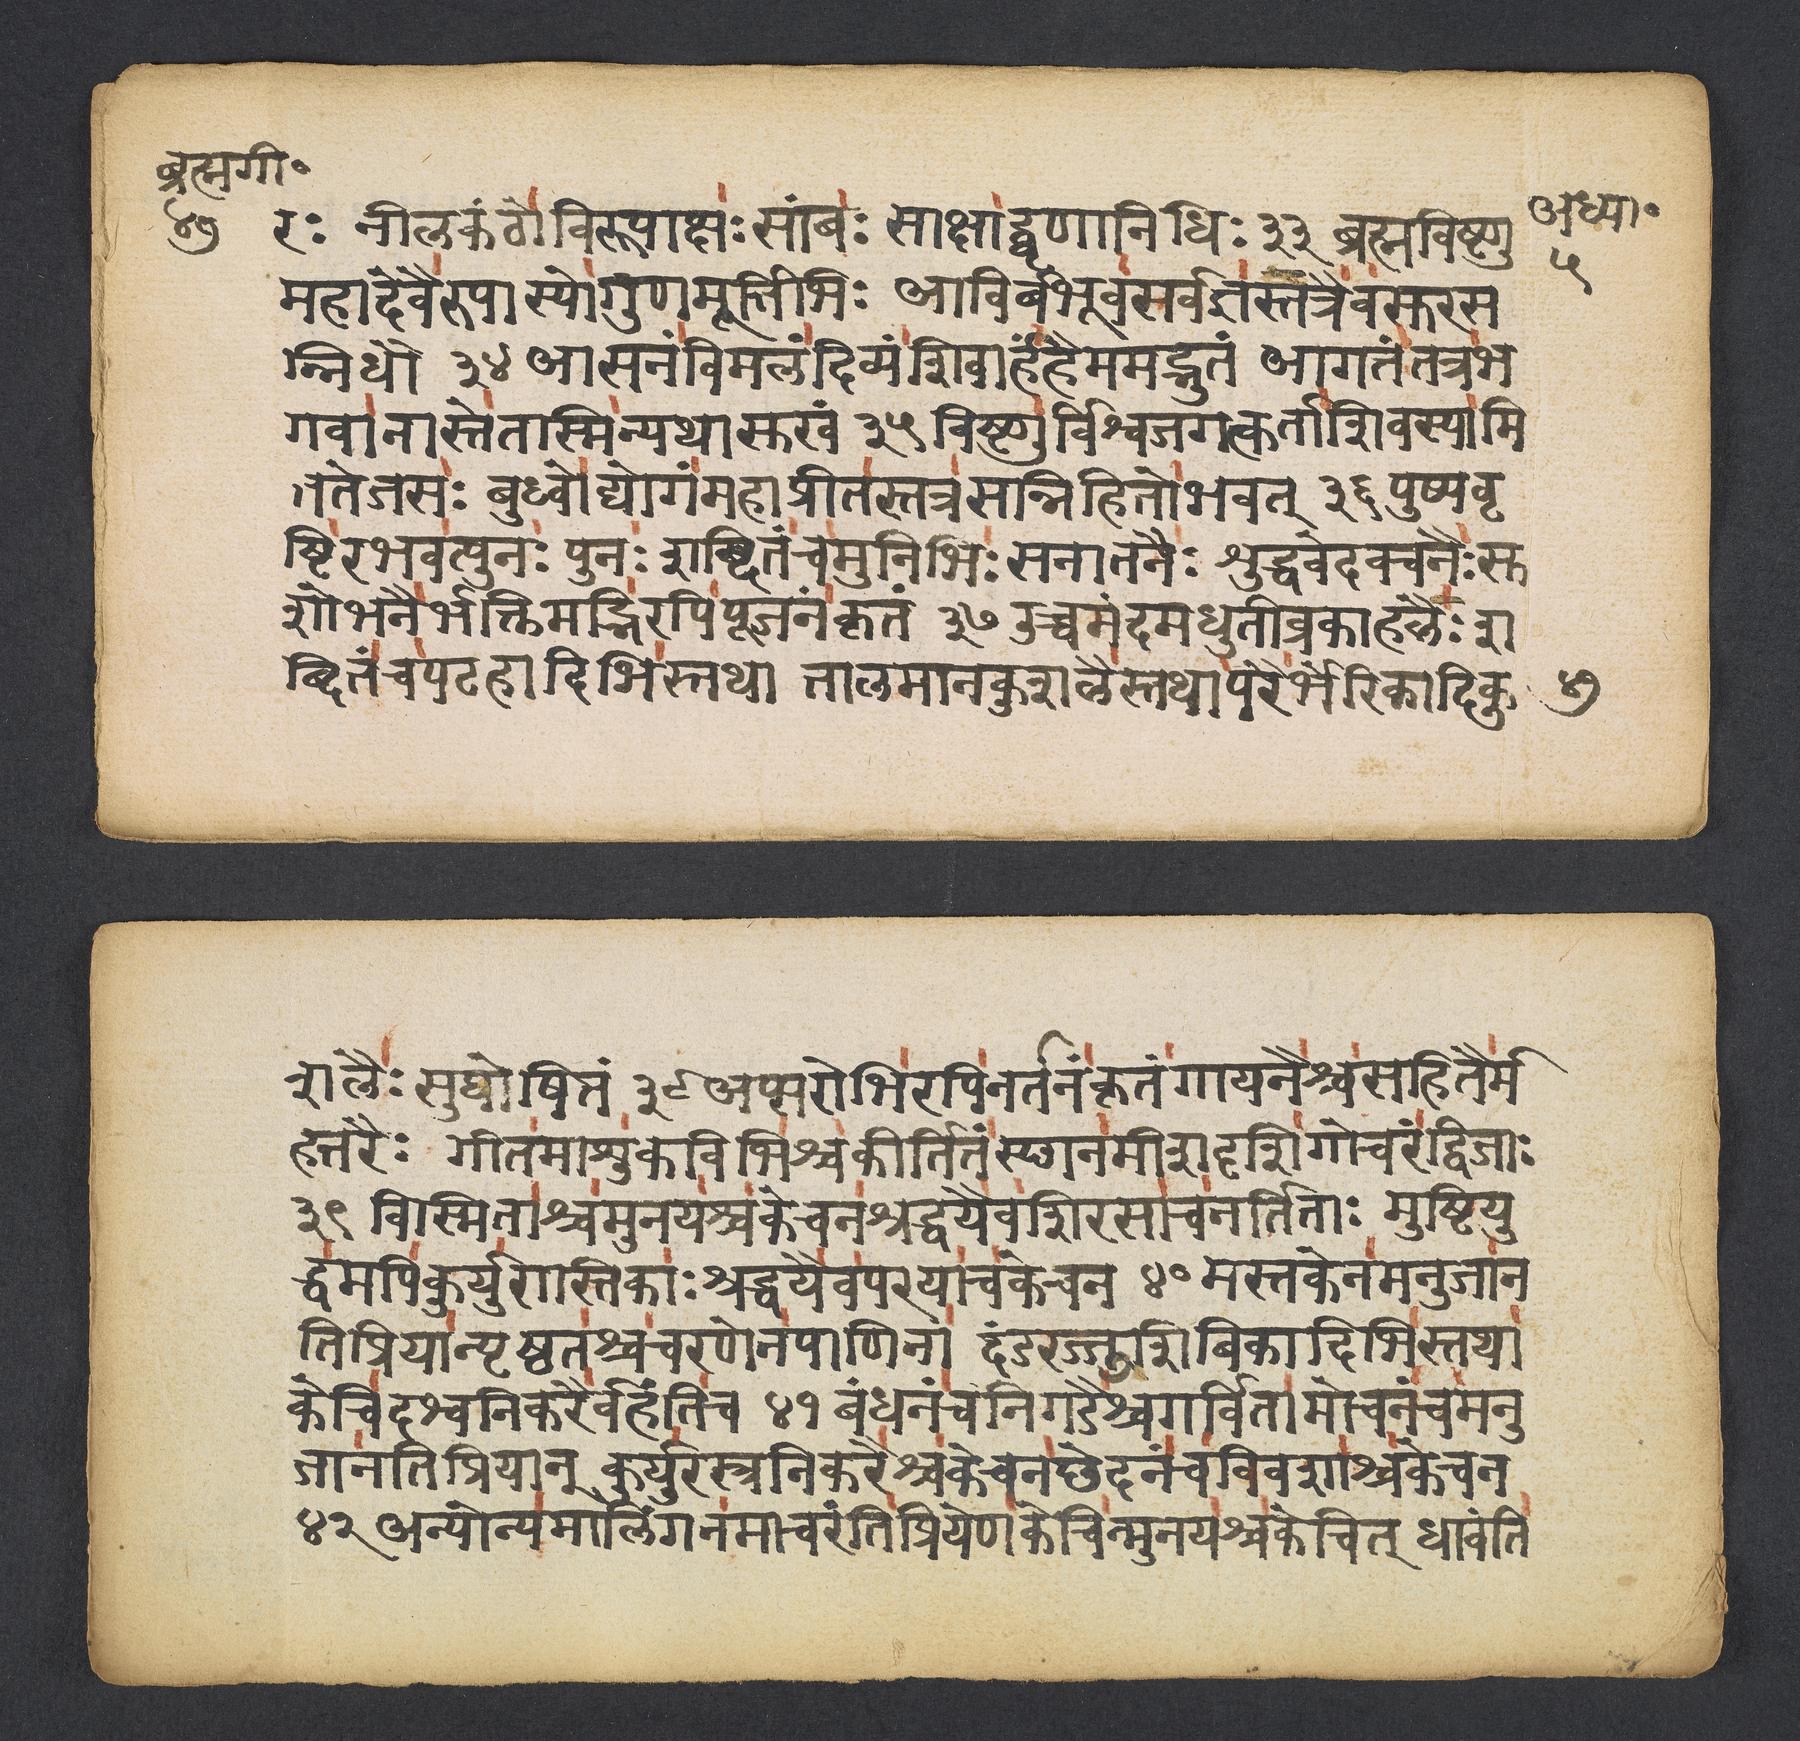 ब्रह्मगी॰
४७
अध्या॰
५
रः नीलकंठोविरूपाक्षः सांबः साक्षाद्घृणानिधिः ३३ ब्रह्मविष्णु
महादेवैरुपास्योगुणमूर्त्तिभिः आविर्बभूवसर्वज्ञस्तत्रैवसुरस
न्निधौ ३४ आसनंविमलंदिव्यंशिवार्हंहैममद्भुतं आगतंतत्रभ
गवानास्तेतास्मिन्यथासुखं ३५ विष्णुर्विश्वजगत्कर्ताशिवस्यामि
ततेजसः बुध्वोद्योगंमहाप्रीतस्तत्रसन्निहितोभवत् ३६ पुष्पवृ
ष्टिरभवत्पुनः पुनः शब्दितंचमुनिभिः सनातनैः शुद्धवेदवचनैः सु
शोभनैर्भक्तिमद्भिरपिपूजनंकृतं ३७ उच्चमंदमधुतीव्रकाहलैः श
ब्दितंचपटहादिभिस्तथा तालमानकुशलैस्तथापरैर्भेरिकादिकु
४७
शलैः सुघोषितं ३८ अप्सरोभिरपिनर्तनंकृतं गायनैश्चसहितैर्म
हत्तरैः गीतमाशुकविभिश्चकीर्तितंस्थानमीशदृशिगोचरंद्विजाः
३९ विस्मिताश्चमुनयश्चकेचनश्रद्धयैवशिरसाचनर्तिताः मुष्टियु
द्धमपिकुर्युरास्तिकाः श्रद्धयैवपरयाचकेचन ४० मस्तकेनमनुजान
तिप्रियान्पृष्ठतश्चचरणेनपाणिना दंडरज्जुशिबिकादिभिस्तथा
केचिदश्वनिकरैर्वहंतिच ४१ बंधनंचनिगडैश्चगर्वितामोचनंचमनु
जानतिप्रियान् कुर्युरस्त्रनिकरैश्चकेचनछेदनंचविवशाश्चकेचन
४२ अन्योन्यमालिंगनमाचरंतिप्रियेणकेचिन्मुनयश्चकेचित् धावंति